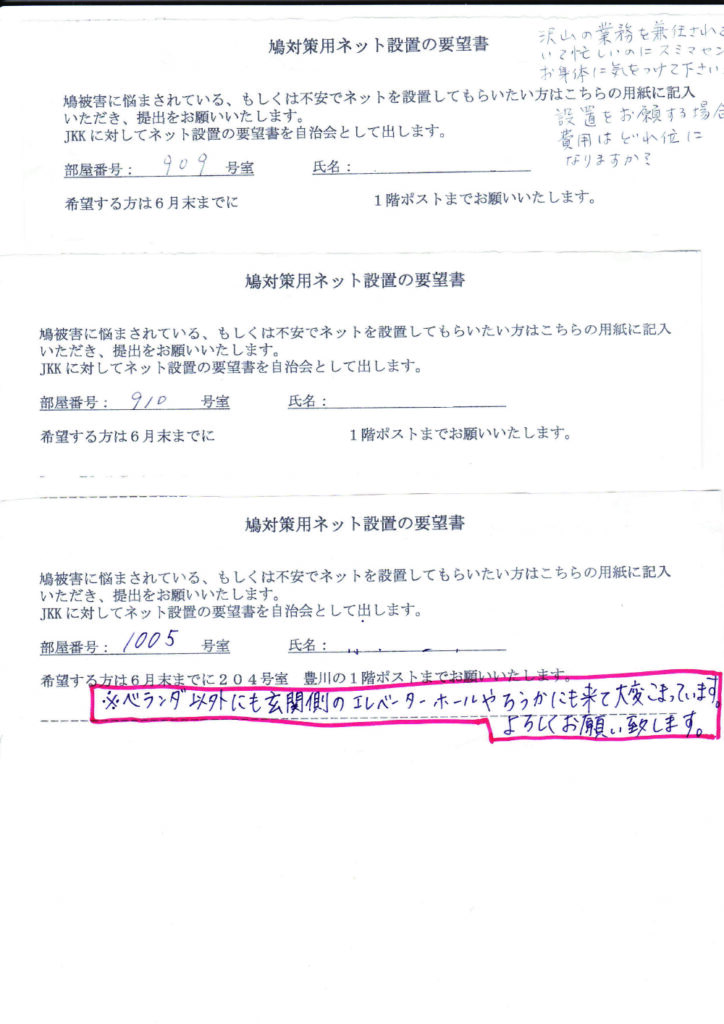 鳩対策用ネット設置の要望書
沢山の業務を兼任され
いて忙しいのにスミマセン
お身体に気をつけて下さい
鳩被害に悩まされている、もしくは不安でネットを設置してもらいたい方はこちらの用紙に記入
いただき、提出をお願いいたします。
JKKに対してネット設置の要望書を自治会として出します。
設置をお願する場合
費用はどれ位に
なりますか?
部屋番号: 909 号室 氏名:
希望する方は6月末までに 1階ポストまでお願いいたします。
鳩対策用ネット設置の要望書
鳩被害に悩まされている、もしくは不安でネットを設置してもらいたい方はこちらの用紙に記入
いただき、提出をお願いいたします。
JKKに対してネット設置の要望書を自治会として出します。
部屋番号: 910 号室 氏名:
希望する方は6月末までに 1階ポストまでお願いいたします。
鳩対策用ネット設置の要望書
鳩被害に悩まされている、もしくは不安でネットを設置してもらいたい方はこちらの用紙に記入
いただき、提出をお願いいたします。
JKKに対してネット設置の要望書を自治会として出します。
部屋番号: 1005 号室 氏名:
希望する方は6月末までに204号室 豊川の1階ポストまでお願いいたします。
※ベランダ以外にも玄関側のエレベーターホールやろうかにも来て大変こまっています。
よろしくお願い致します。